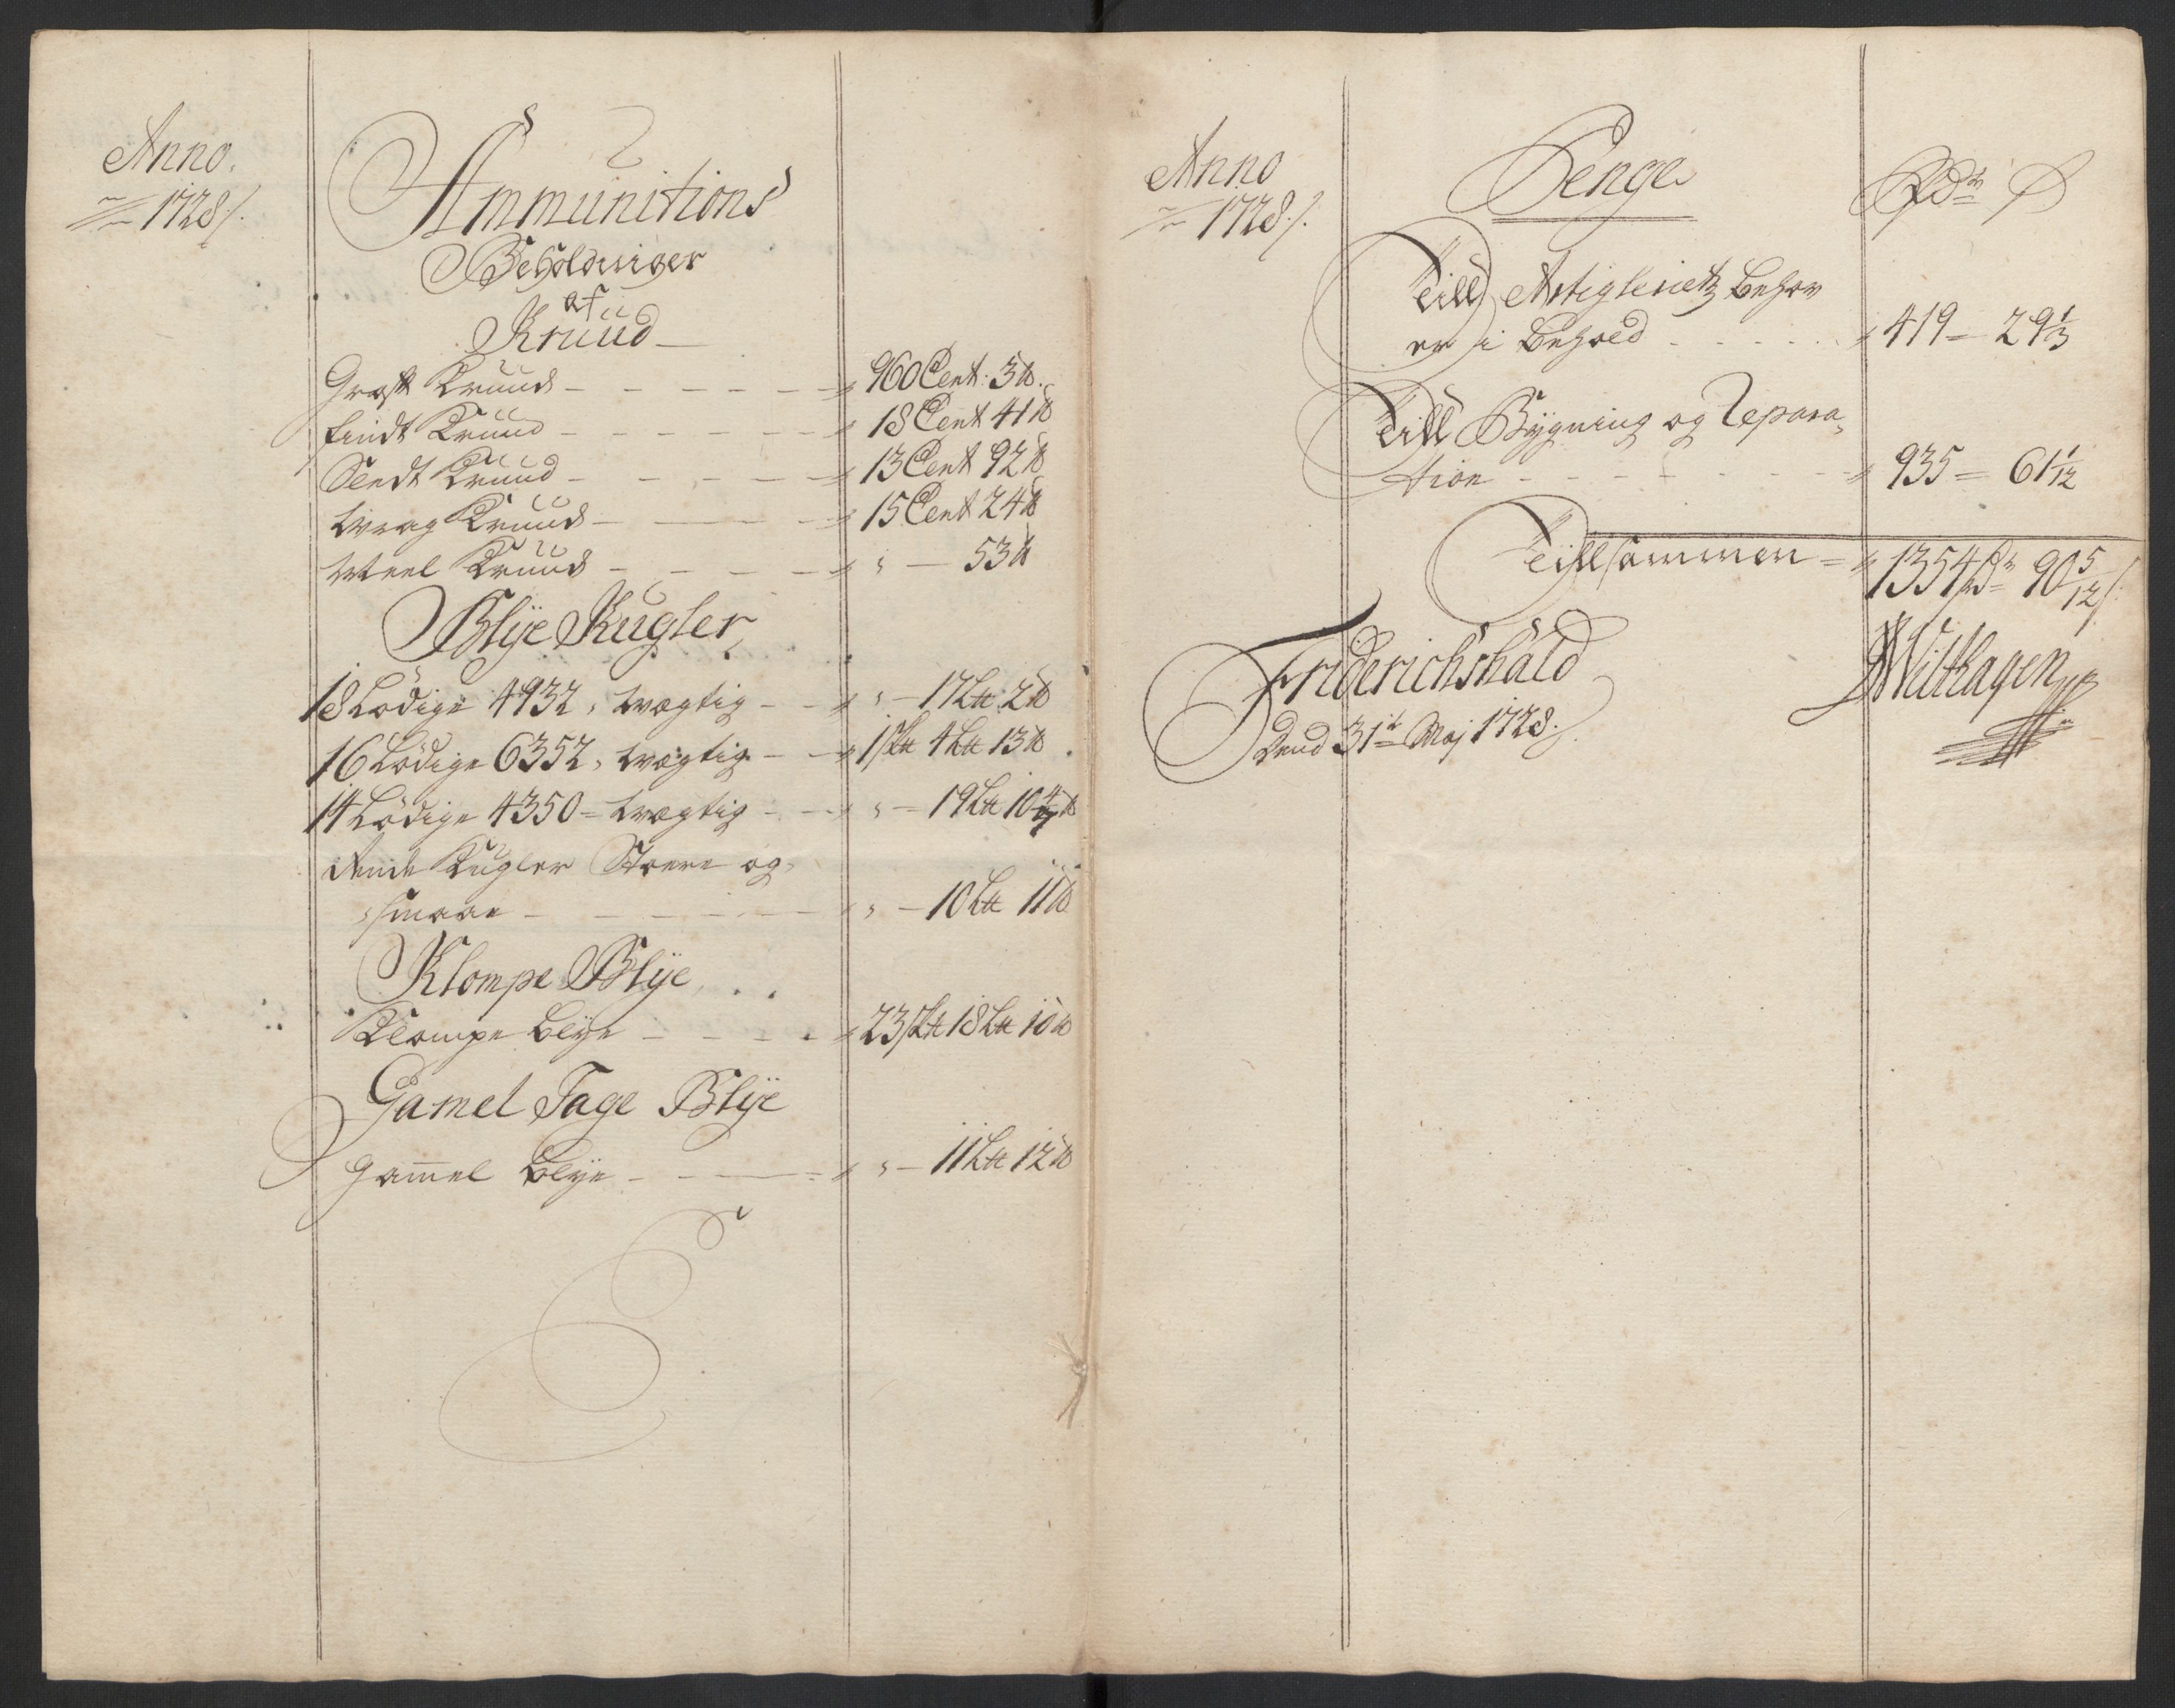 Anno.
1728/.
Ammunitions
Beholdninger
af
Krüüd
Groft Krüüd 960 Cent. 3 ℔.
fündt Krüüd 18 Cent 41 ℔
Sendt Krüüd 13 Cent 92 ℔
wrag Krüüd 15 Cent 24 ℔
Meel Krüüd 53 ℔
Blÿe Kugler
18 Lödige 4932, wægtig 17 L℔ 2 ℔
16 Lödige 6352, wægtig 1 s℔ 4 L℔ 13 ℔
14 Lödige 4350 = wægtig 19 L℔ 10 4/7 ℔
Kugler Stoere og
smaae 10 L℔ 11 ℔
Klompe Blÿe
Klompe Blÿe 23 s℔ 18 L℔ 10 ℔
Gamel Tage Blÿe
Gam̄el Blÿe 11 L℔ 12 ℔
Anno
1728/.
Penge
Rdr ß
Till Artigleriets behov
er i behold 419 29 1/3
Till Bÿgning og Repara„
tion 935 61 1/12
Tillsammen 1354 Rdr 90 5/12/.
Friderichshald
Dend 31t Maj 1728.
Wilthagen